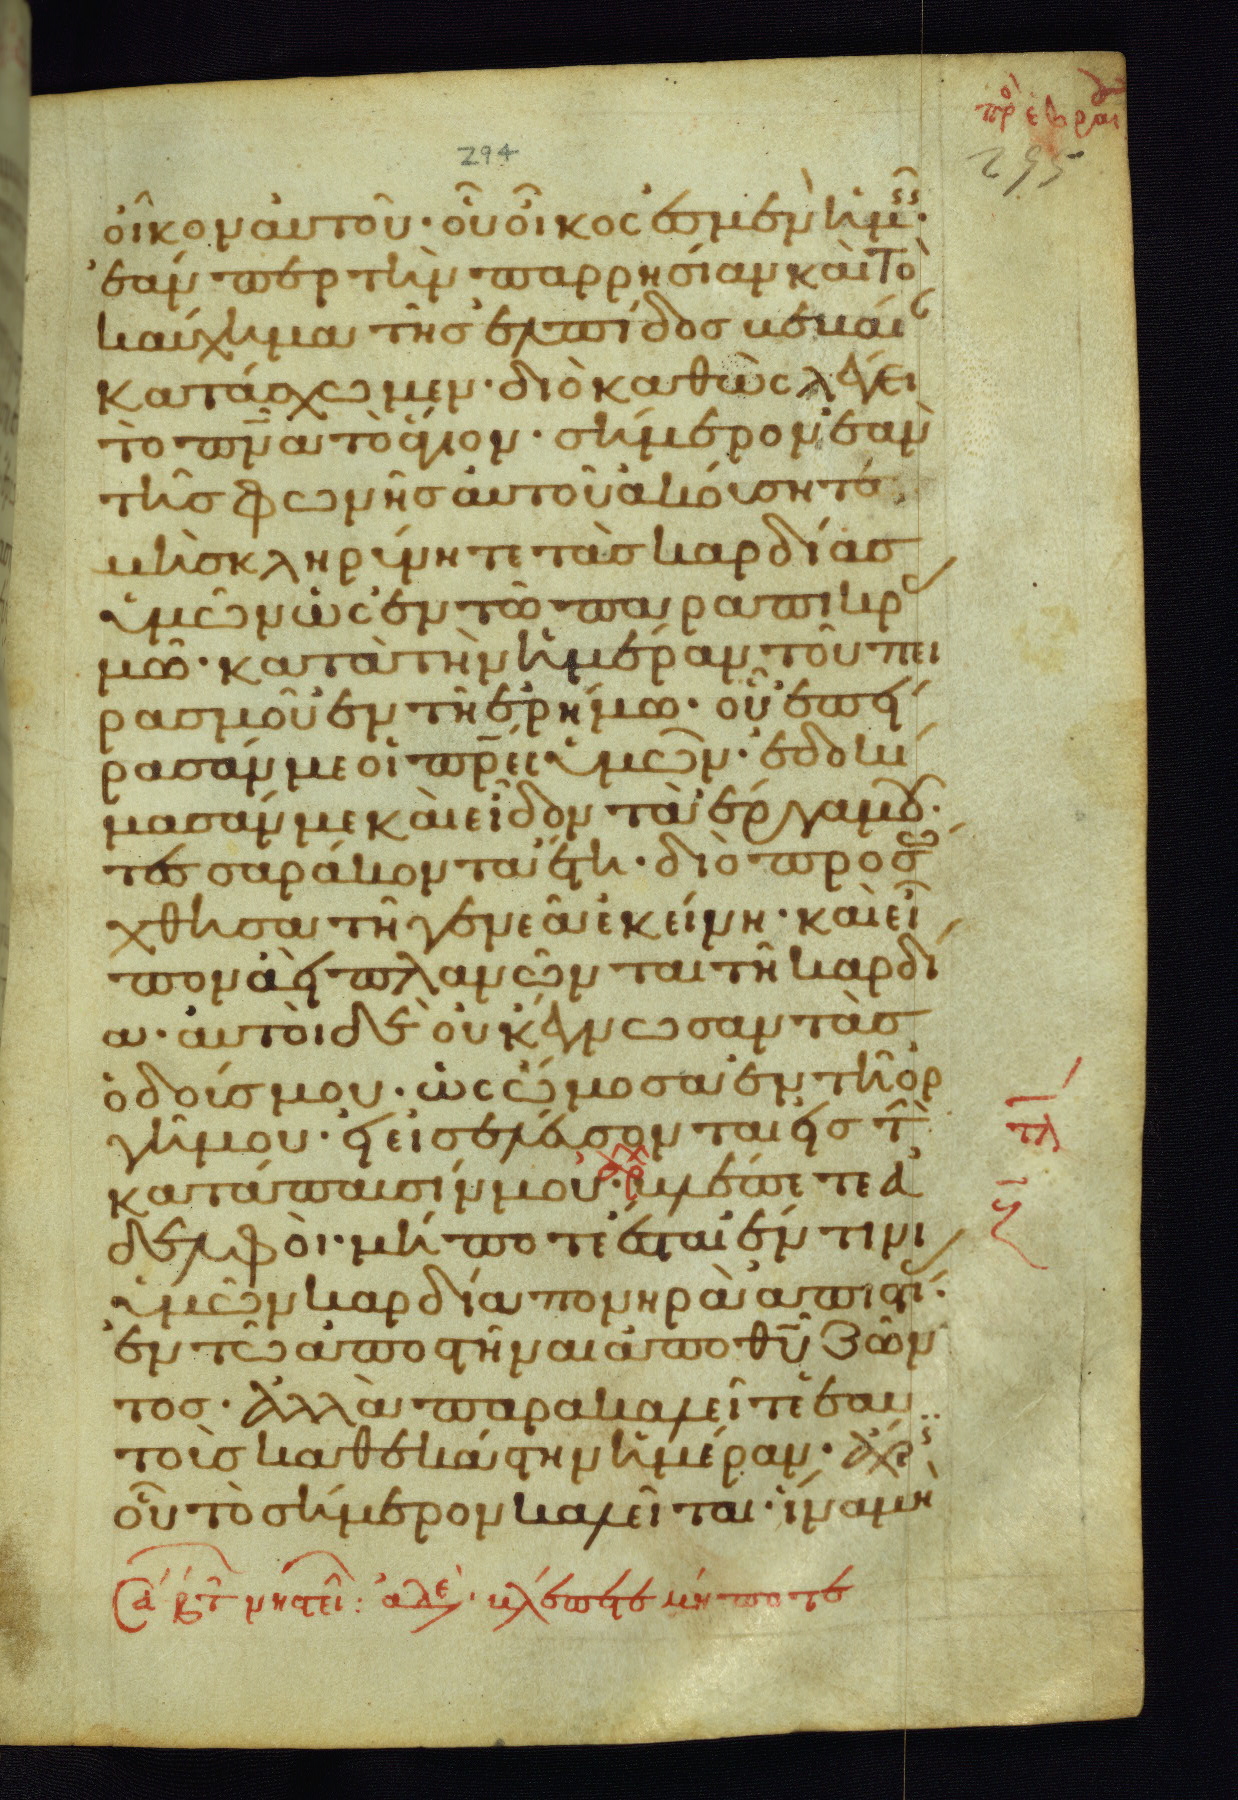 πρὸ ἑβραι
294
295
οἶκον ἀυτοῦ· οὗ οἶκος ἐσμὲν ἡμεῖς·
ἐάν περ τὴν παρρησίαν καὶ τὸ
καύχημα τῆς ἐλπίδος κεκαί
κατάσχωμεν· διὸ καθὼς λέγει
τὸ πν̅α τὸ ἅγιον· σήμερον ἐὰν
τῆς φωνῆς ἀυτοῦ ἀκόυσητε,
μὴ σκληρύνητε τὰς καρδίας
ὑμῶν ὡς ἐν τῶ παραπικρ
μῶ· κατὰ τὴν ἡμέραν τοῦ πει
ρασμοῦ ἐν τῆ ἐρήμω· οὗ ἐπεί
ρασάν με οἱ πρ̅ες ὑμῶν· ἐδοκί
μασάν με καὶ εἶδον τὰ ἔργα μου·
τεσσαράκοντα ἔτη· διὸ προσω
χθησα τῆ γενεᾶ ἐκείνη· καὶ εἶ
πον ἀεὶ πλανῶνται τῆ καρδί
α· ἀυτοὶ δὲ ὀυκ ἔγνωσαν τὰς
ὁδούς μου· ὡς ὤμοσα ἐν τῆ ὀρ
γῆ μου· εἰ εἰσελέυσονται εἰς τὴν
κατάπαυσίν μου· βλέπετε ἀ
δελφοὶ· μή ποτε ἔσται ἔν τινι
ὑμῶν καρδία πονηρὰ ἀπιστί·
ἐν τῶ ἀποστῆναι ἀπο θ̅υ ζῶν
τος· ἀλλὰ παρακαλεῖτε ἑαυ
τοὺς καθ ἑκάστην ἡμέραν· ἄχρις
οὗ τὸ σήμερον καλεῖται· ἵνα μὴ
τλ
νηστει: ἀδε· βλέπετε μήποτε